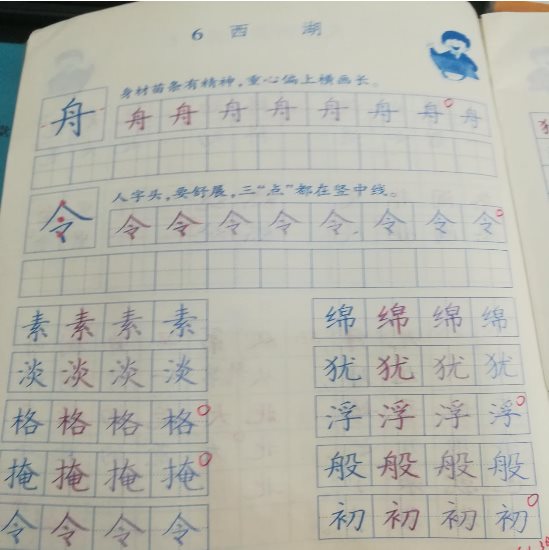 6 西 湖
身材苗条有精神，重心偏上横画长。
舟 舟 舟 舟 舟 舟 舟 舟 舟
人字头，要舒展，三“点”都在竖中线。
令 令 令 令 令 令 令 令 令
素 素 素 素 绵 绵 绵 绵
淡 淡 淡 淡 犹 犹 犹 犹
格 格 格 格 浮 浮 浮 浮
掩 掩 掩 掩 般 般 般 般
令 令 令 令 初 初 初 初